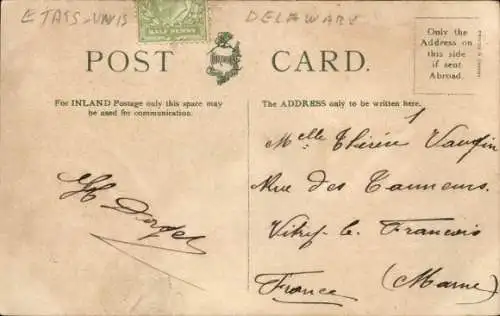 ETATS-UNIS
DELAWARE
HALF PENNY
POST CARD.
Only the
Address on
this side
if sent
Abroad.
For INLAND Postage only this space may
be used for communication.
The ADDRESS only to be written here.
Melle Thérèse
Rue des Tanneurs.
Vitry-le-Francois
France (Marne)